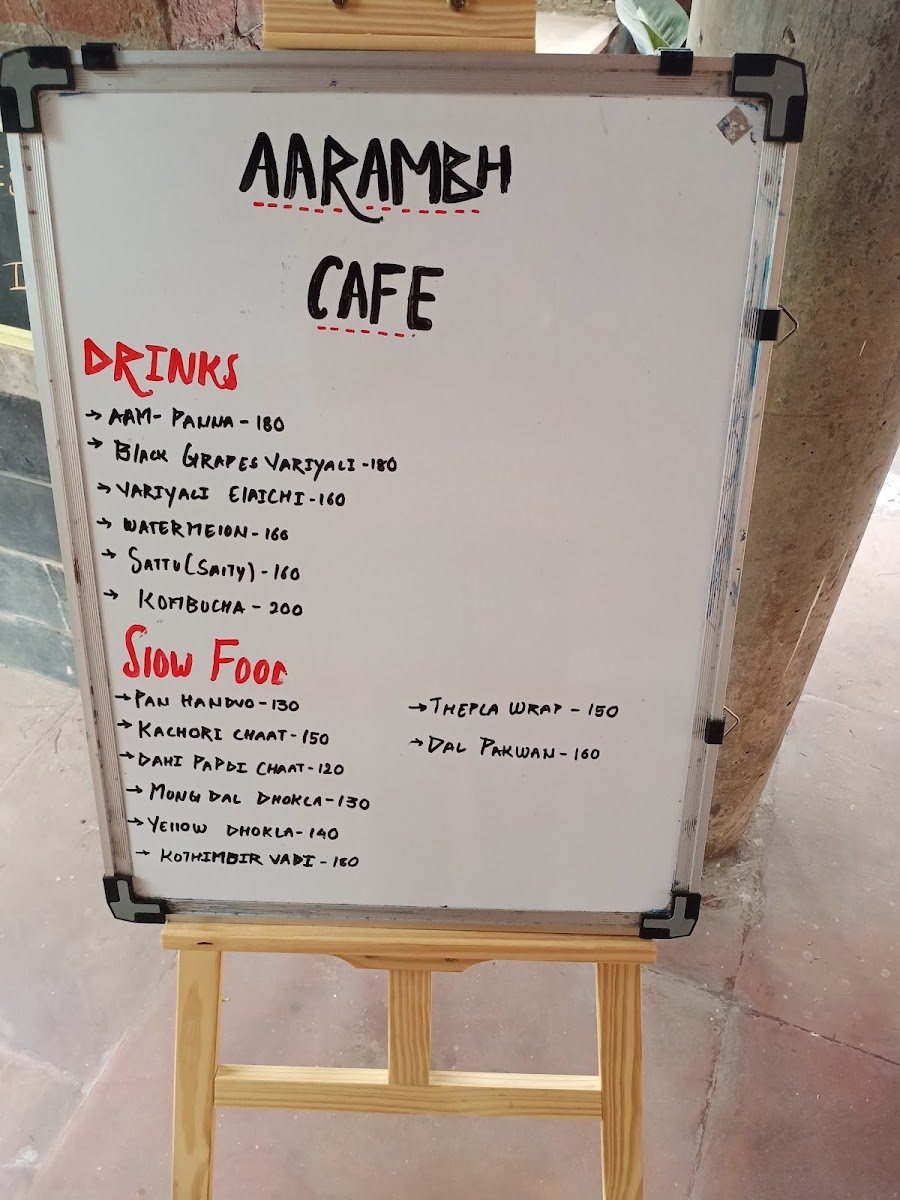 AARAMBH
CAFE
DRINKS
→ AAM-PANNA - 180
→ BLACK GRAPES VARIYALI - 180
→ VARIYALI ElAICHI - 160
→ WATERMElON - 160
→ SATTU (SAlTY) - 160
→ KOMBUCHA - 200
SlOW FOOD
→ PAN HANDVO - 130
→ KACHORI CHAAT - 150
→ DAHI PAPDI CHAAT - 120
→ MONG DAL DHOKLA - 130
→ YEllOW DHOKLA - 140
→ KOTHIMBIR VADI - 180
→ THEPLA WRAP - 150
→ DAL PAKWAN - 160